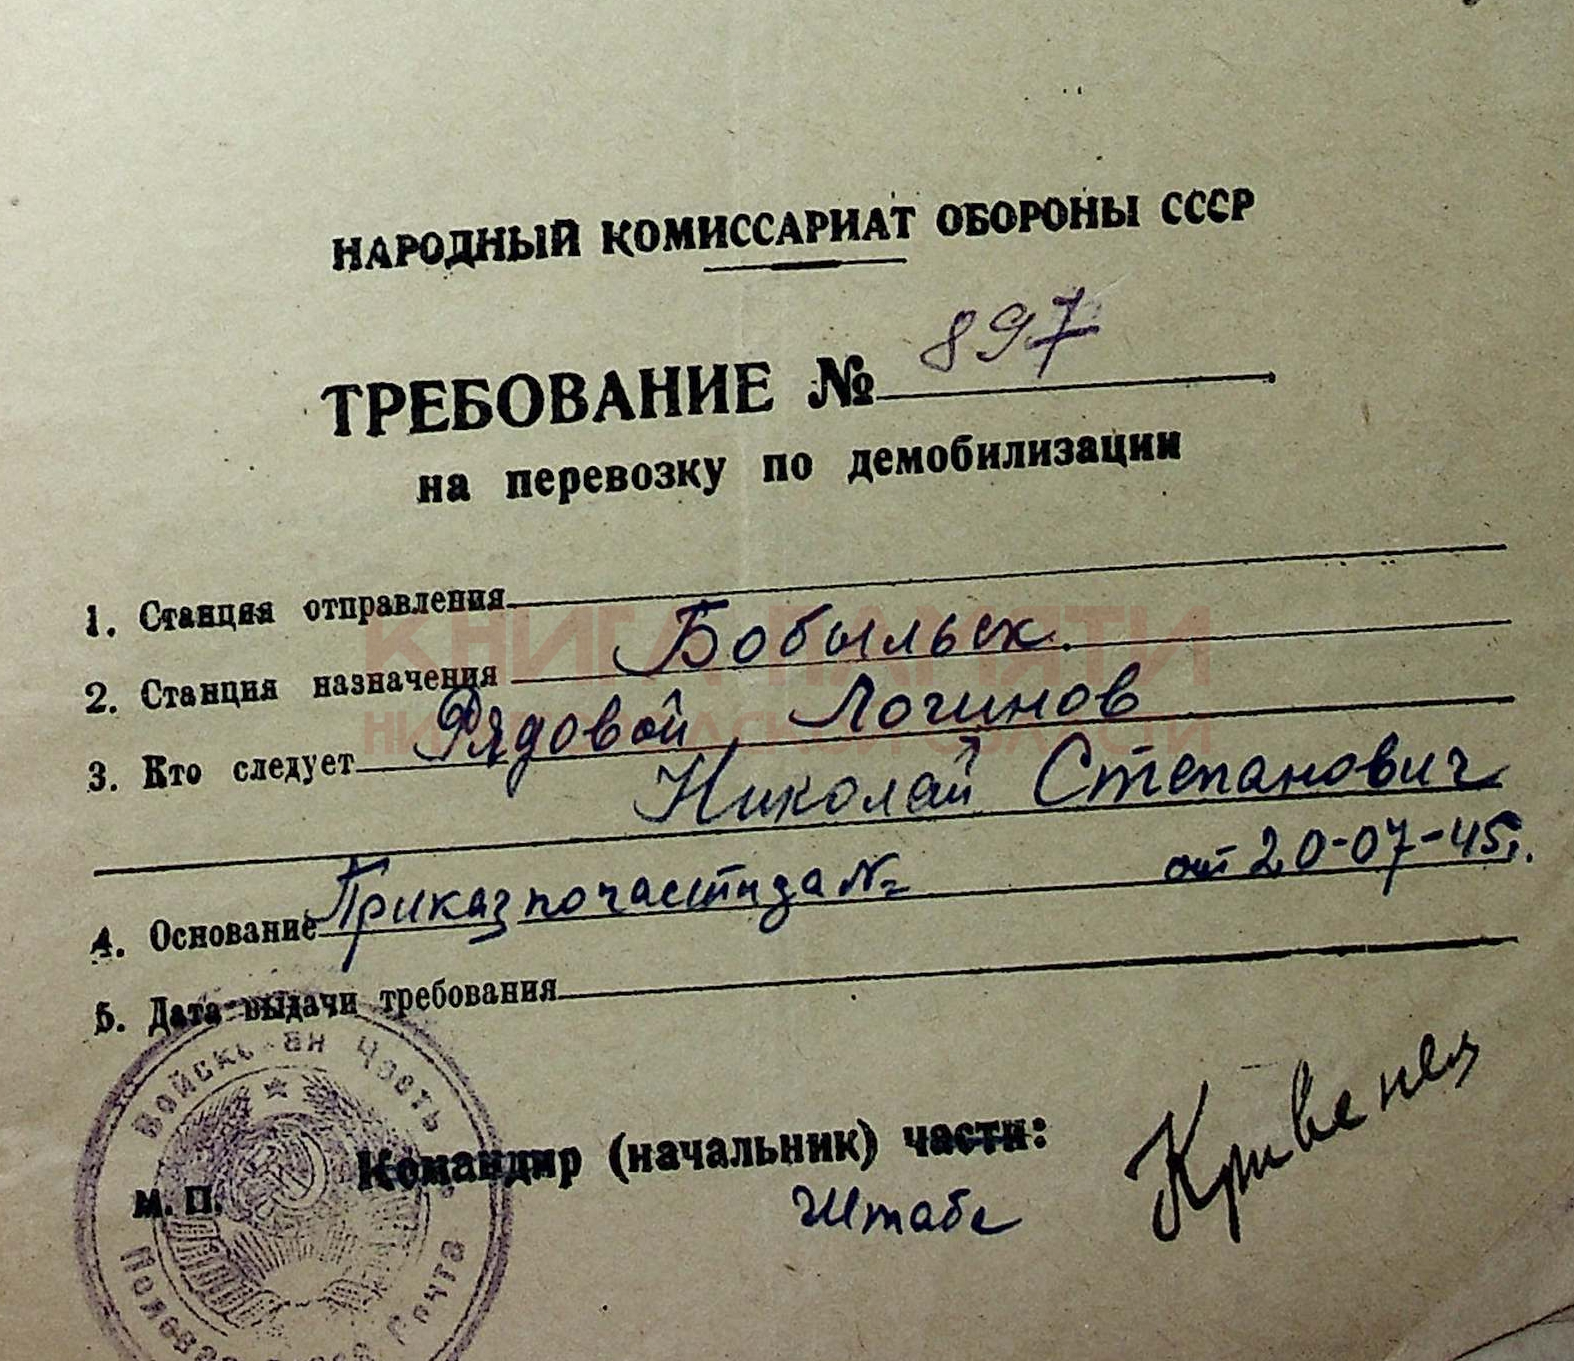 НАРОДНЫЙ КОМИССАРИАТ ОБОРОНЫ СССР
ТРЕБОВАНИЕ № 897
на перевозку по демобилизации
1. Станция отправления
2. Станция назначения Бобыльск.
3. Кто следует Рядовой Логинов
Николай Степанович
4. Основание Приказ по части за № от 20-07-45г.
5. Дата выдачи требования
Войсковая Часть
М. П.
Командир (начальник) части:
Штаба
Кривенец
Полевая Почта
КНИГА ПАМЯТИ